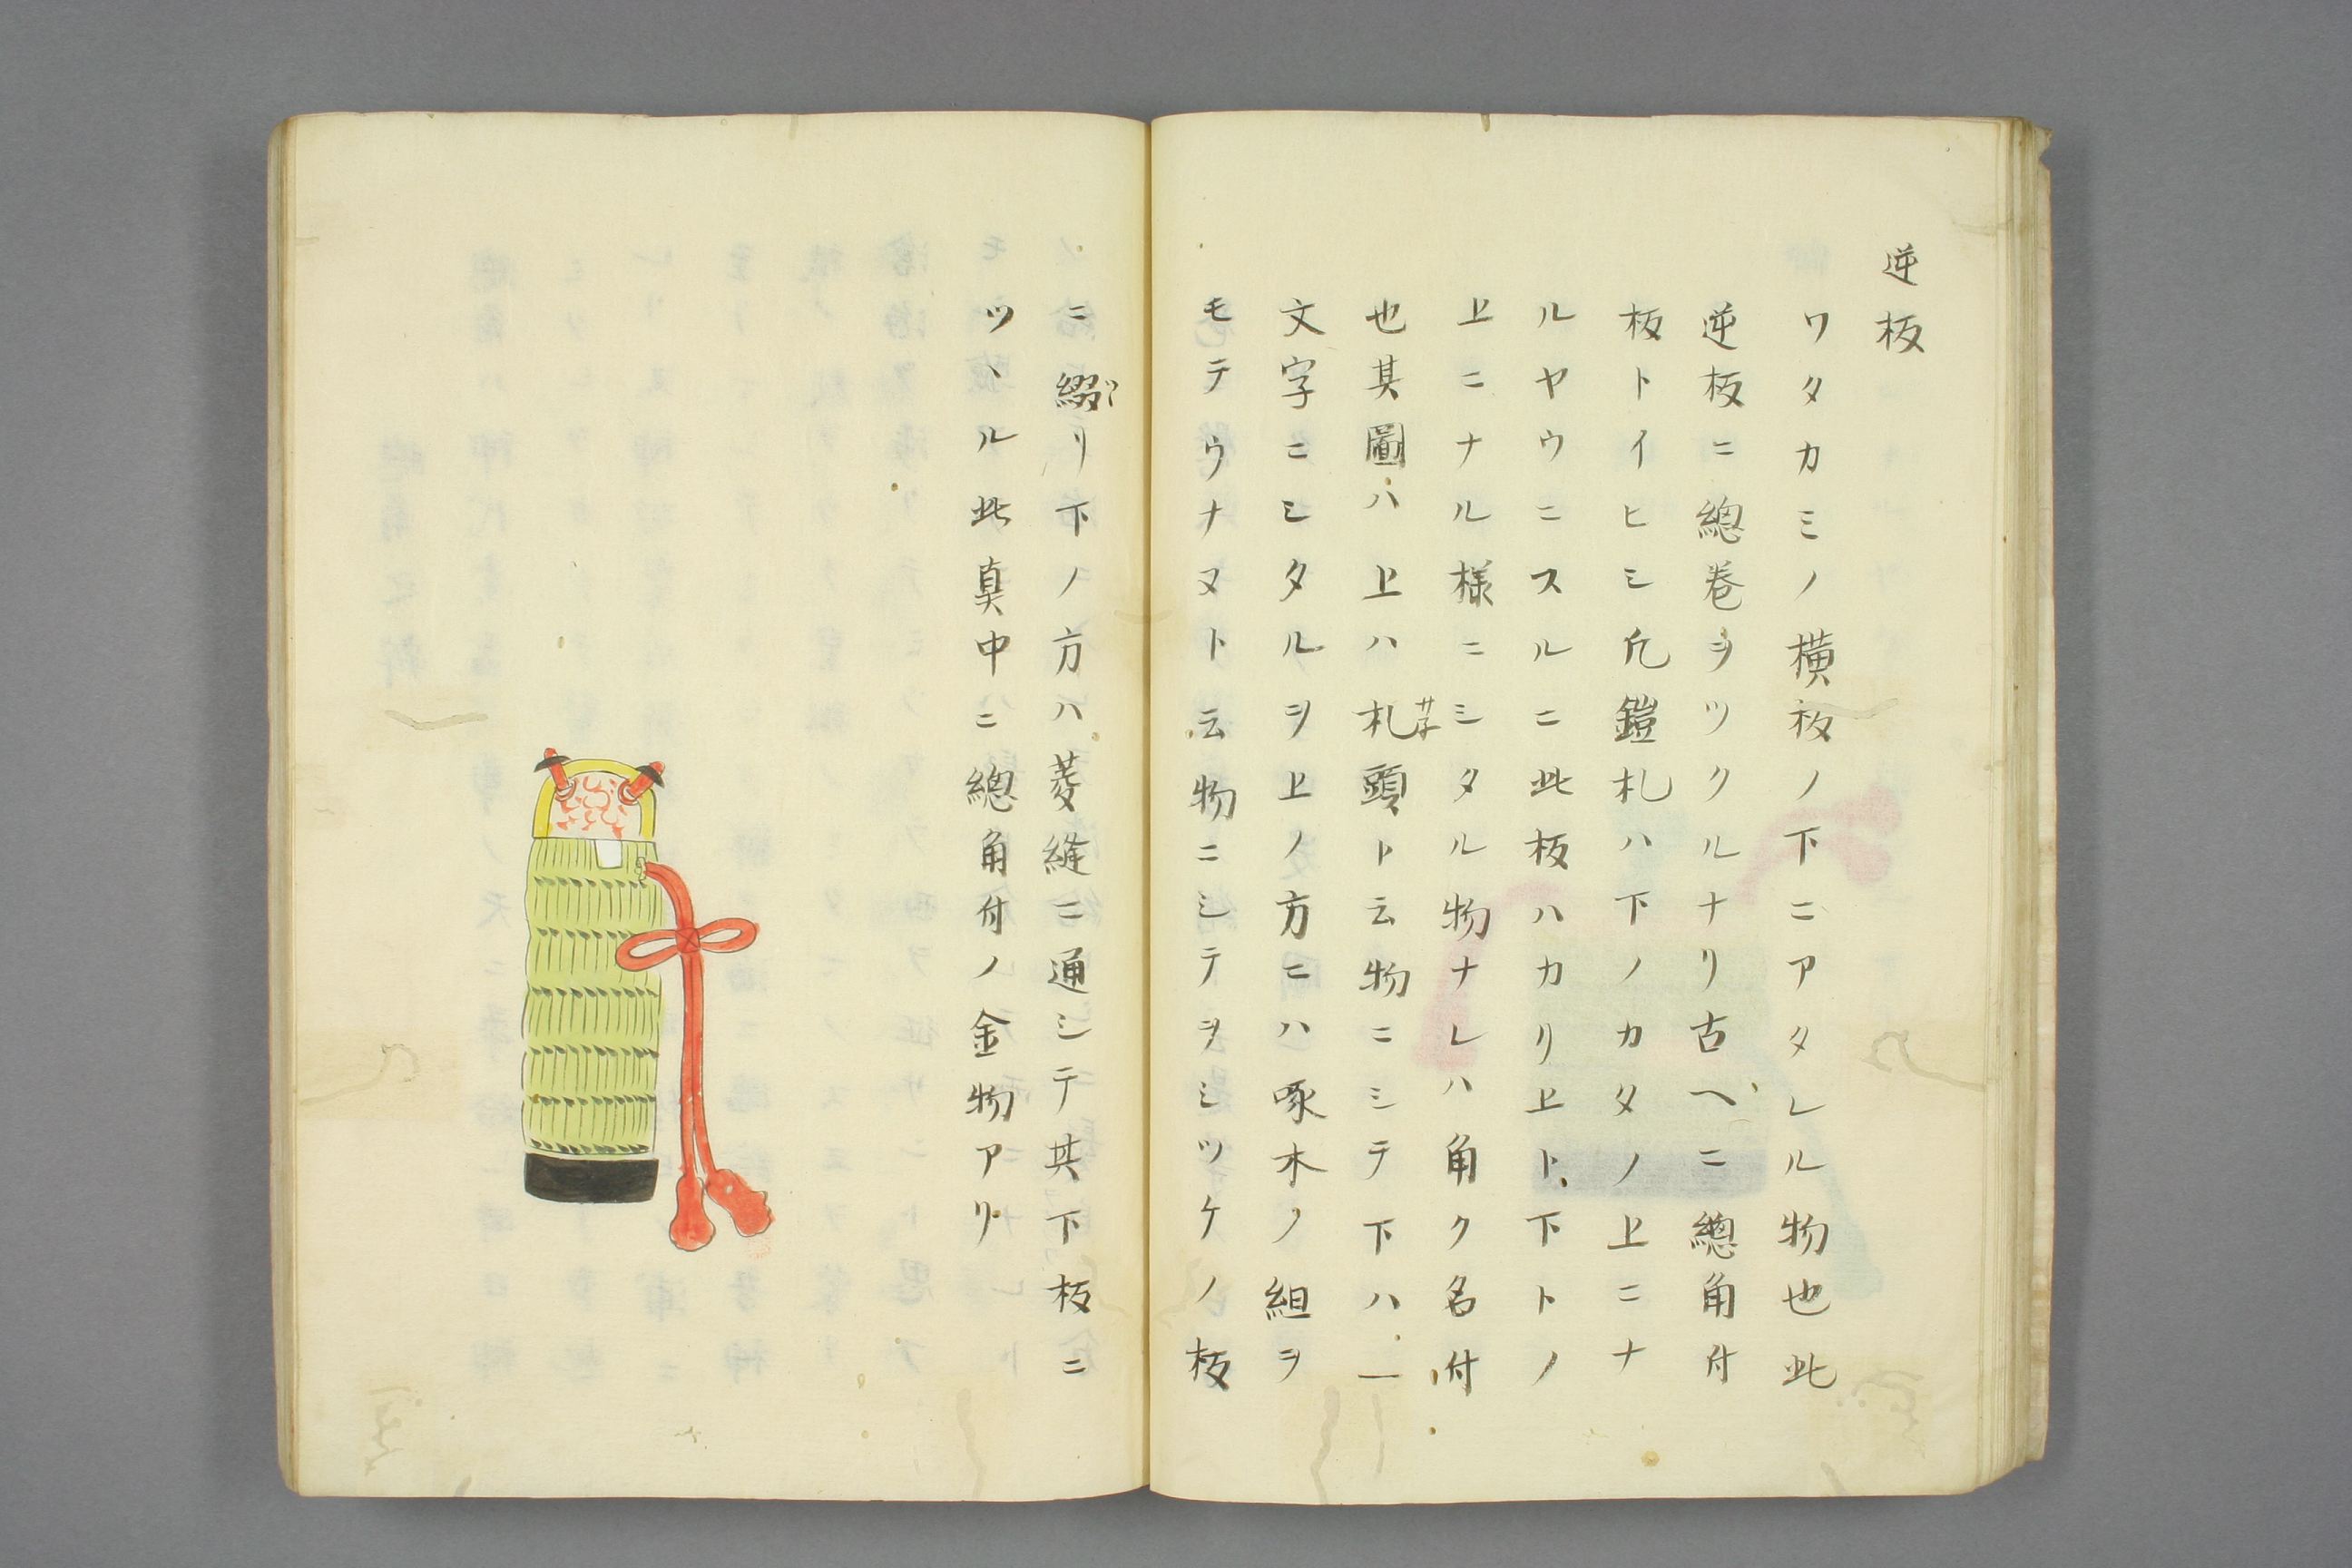 逆板
ワタカミノ横板ノ下ニアタレル物也此
逆板ニ總巻ヲツクルナリ古ヘニ總角付
板トイヒシ凢鎧札ハ下ノカタノ上ニナ
ルヤウニスルニ此板ハカリ上ト下トノ
上ニナル様ニシタル物ナレハ角ク名付
也其圖ハ上ハ札頭ト云物ニシテ下ハ一
サネ
文字ニシタルヲ上ノ方ニハ啄木ノ組ヲ
モテウナヌト云物ニシテヲシツケノ板
ニ綴リ下ノ方ハ菱縫ニ通シテ其下板ニ
ツヽル此真中ニ總角付ノ金物アリ